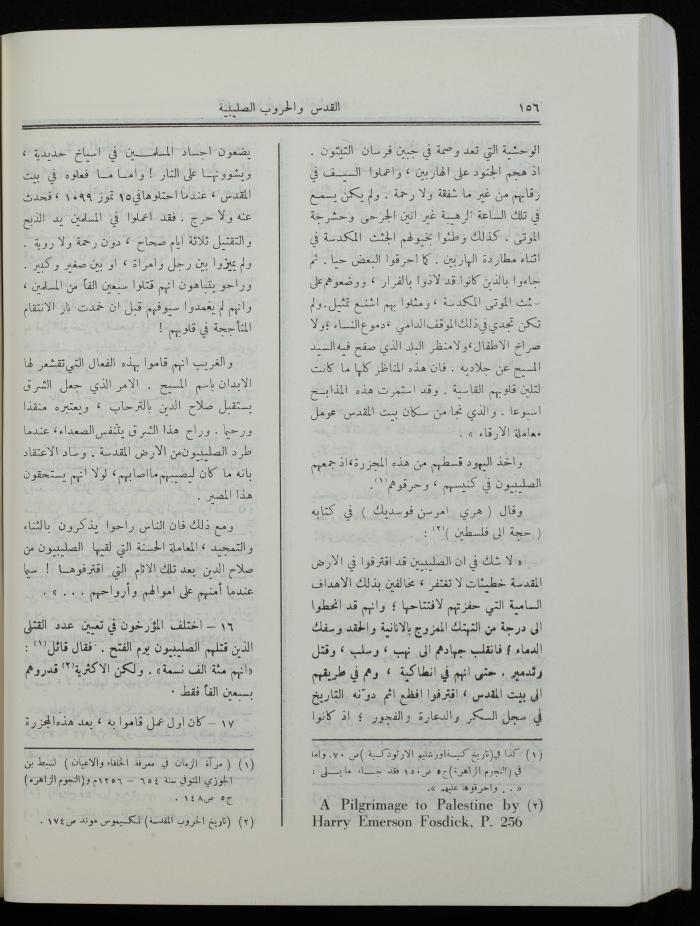 ١٥٦
القدس والحروب الصليبية
الوحشية التي تعد وصمة في جبين فرسان التيتون .
اذ هجم الجنود على الهاربين ، واعملوا السيف في
رقابهم من غير ما شفقة ولا رحمة . ولم يكن يسمع
في تلك الساعة الرهيبة غير انين الجرحى وحشرجة
الموتى . كذلك وطئوا بخيولهم الجثث المكدسة في
اثناء مطاردة الهاربين . كما احرقوا البعض حيا . ثم
جاءوا بالذين كانوا قد لاذوا بالفرار ، ووضعوهم على
جثث الموتى المكدسة ، ومثلوا بهم اشنع تمثيل . ولم
تكن تجدي في ذلك الموقف الدامي ، دموع النساء ؛ ولا
صراخ الاطفال ، ولا منظر البلد الذي صفح فيه السيد
المسيح عن جلاديه . فان هذه المناظر كلها ما كانت
لتلين قلوبهم القاسية . وقد استمرت هذه المذابح
اسبوعا . والذي نجا من سكان بيت المقدس عومل
معاملة الارقاء » .
واخذ اليهود قسطهم من هذه المجزرة ، اذ جمعهم
الصليبيون في كنيسهم ، وحرقوهم (١) .
وقال ( هري امرسن فوسديك ) في كتابه
( حجة الى فلسطين ) (٢) :
« لا شك في ان الصليبيين قد اقترفوا في الارض
المقدسة خطيئات لا تغتفر ، مخالفين بذلك الاهداف
السامية التي حفزتهم لافتتاحها ؛ وانهم قد انحطوا
الى درجة من التهتك الممزوج بالانانية والحقد وسفك
الدماء ؛ فانقلب جهادهم الى نهب ، وسلب ، وقتل
وتدمير . حتى انهم في انطاكية ، وهم في طريقهم
الى بيت المقدس ، اقترفوا افظع اثم دونه التاريخ
في سجل السكر والدعارة والفجور ؛ اذ كانوا
(١) كذا في (تاريخ كنيسة اورشليم الارثوذكسية ) ص ٧٠. واما
في (النجوم الزاهرة) ج٥ ص١٥٠ فقد جاء ما يلي :
« . . واحرقوها عليهم ».
A Pilgrimage to Palestine by (٢)
Harry Emerson Fosdick, P. 256
يضعون اجساد المسلمين في اسياخ حديدية ،
ويشوونها على النار ! واما ما فعلوه في بيت
المقدس ، عندما احتلوها في ١٥ تموز ١٠٩٩ ، فحدث
عنه ولا حرج . فقد اعملوا في المسلمين يد الذبح
والتقتيل ثلاثة ايام صحاح ، دون رحمة ولا روية .
ولم يميزوا بين رجل وامرأة ، او بين صغير وكبير .
وراحو يتباهون انهم قتلوا سبعين الفاً من المسلمين ،
وانهم لم يغمدوا سيوفهم قبل ان خمدت نار الانتقام
المتأججة في قلوبهم !
والغريب انهم قاموا بهذه الفعال التي تقشعر لها
الابدان باسم المسيح . الامر الذي جعل الشرق
يستقبل صلاح الدين بالترحاب ، ويعتبره منقذا
ورحيما . وراح هذا الشرق يتنفس الصعداء ، عندما
طرد الصليبيون من الارض المقدسة . وساد الاعتقاد
بانه ما كان ليصيبهم ما اصابهم ، لولا انهم يستحقون
هذا المصير .
ومع ذلك فان الناس راحوا يذكرون بالثناء
والتمجيد ، المعاملة الحسنة التي لقيها الصليبيون من
صلاح الدين بعد تلك الاثام التي اقترفوها ! سيما
عندما أمنهم على اموالهم وأرواحهم . . . » .
١٦ – اختلف المؤرخون في تعيين عدد القتلى
الذين قتلهم الصليبيون يوم الفتح . فقال قائل (١) :
«انهم مئة الف نسمة» . ولكن الاكثرية (٢) قدروهم
بسبعين الفاً فقط .
١٧ – كان اول عمل قاموا به ، بعد هذه المجزرة
(١) ( مرآة الزمان في معرفة الخلفاء والاعيان ) لسبط بن
الجوزي المتوفي سنة ٦٥٤ – ١٢٥٦م و(النجوم الزاهرة)
ج٥ ص١٤٨ .
(٢) (تاريخ الحروب المقدسة) لمكسيموس موند ص١٧٤ .